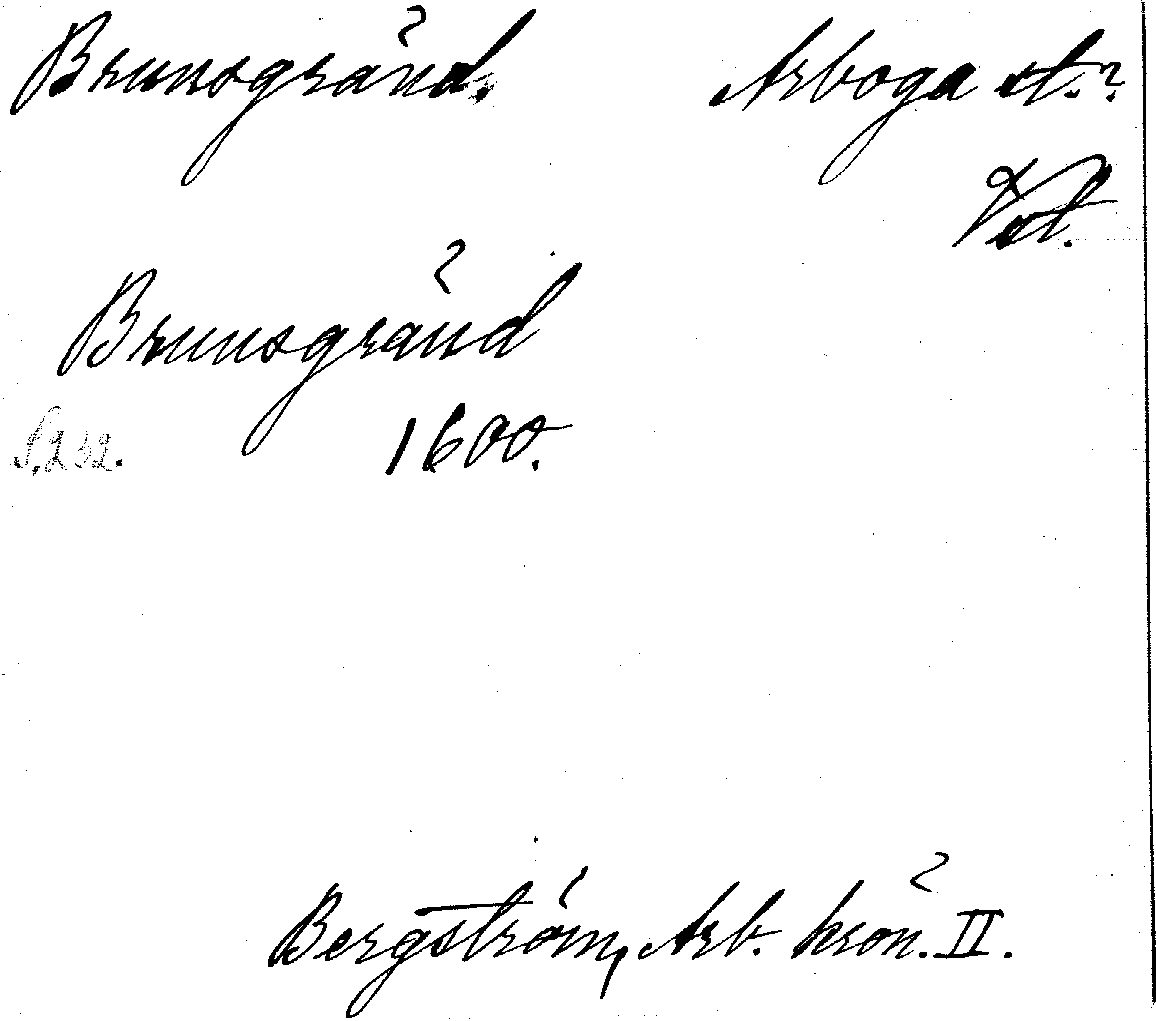 Brunsgränd. Arboga st.?
Vstl.
Brunsgränd
S. 232. 1600.
Bergström, Arb. krön. II.